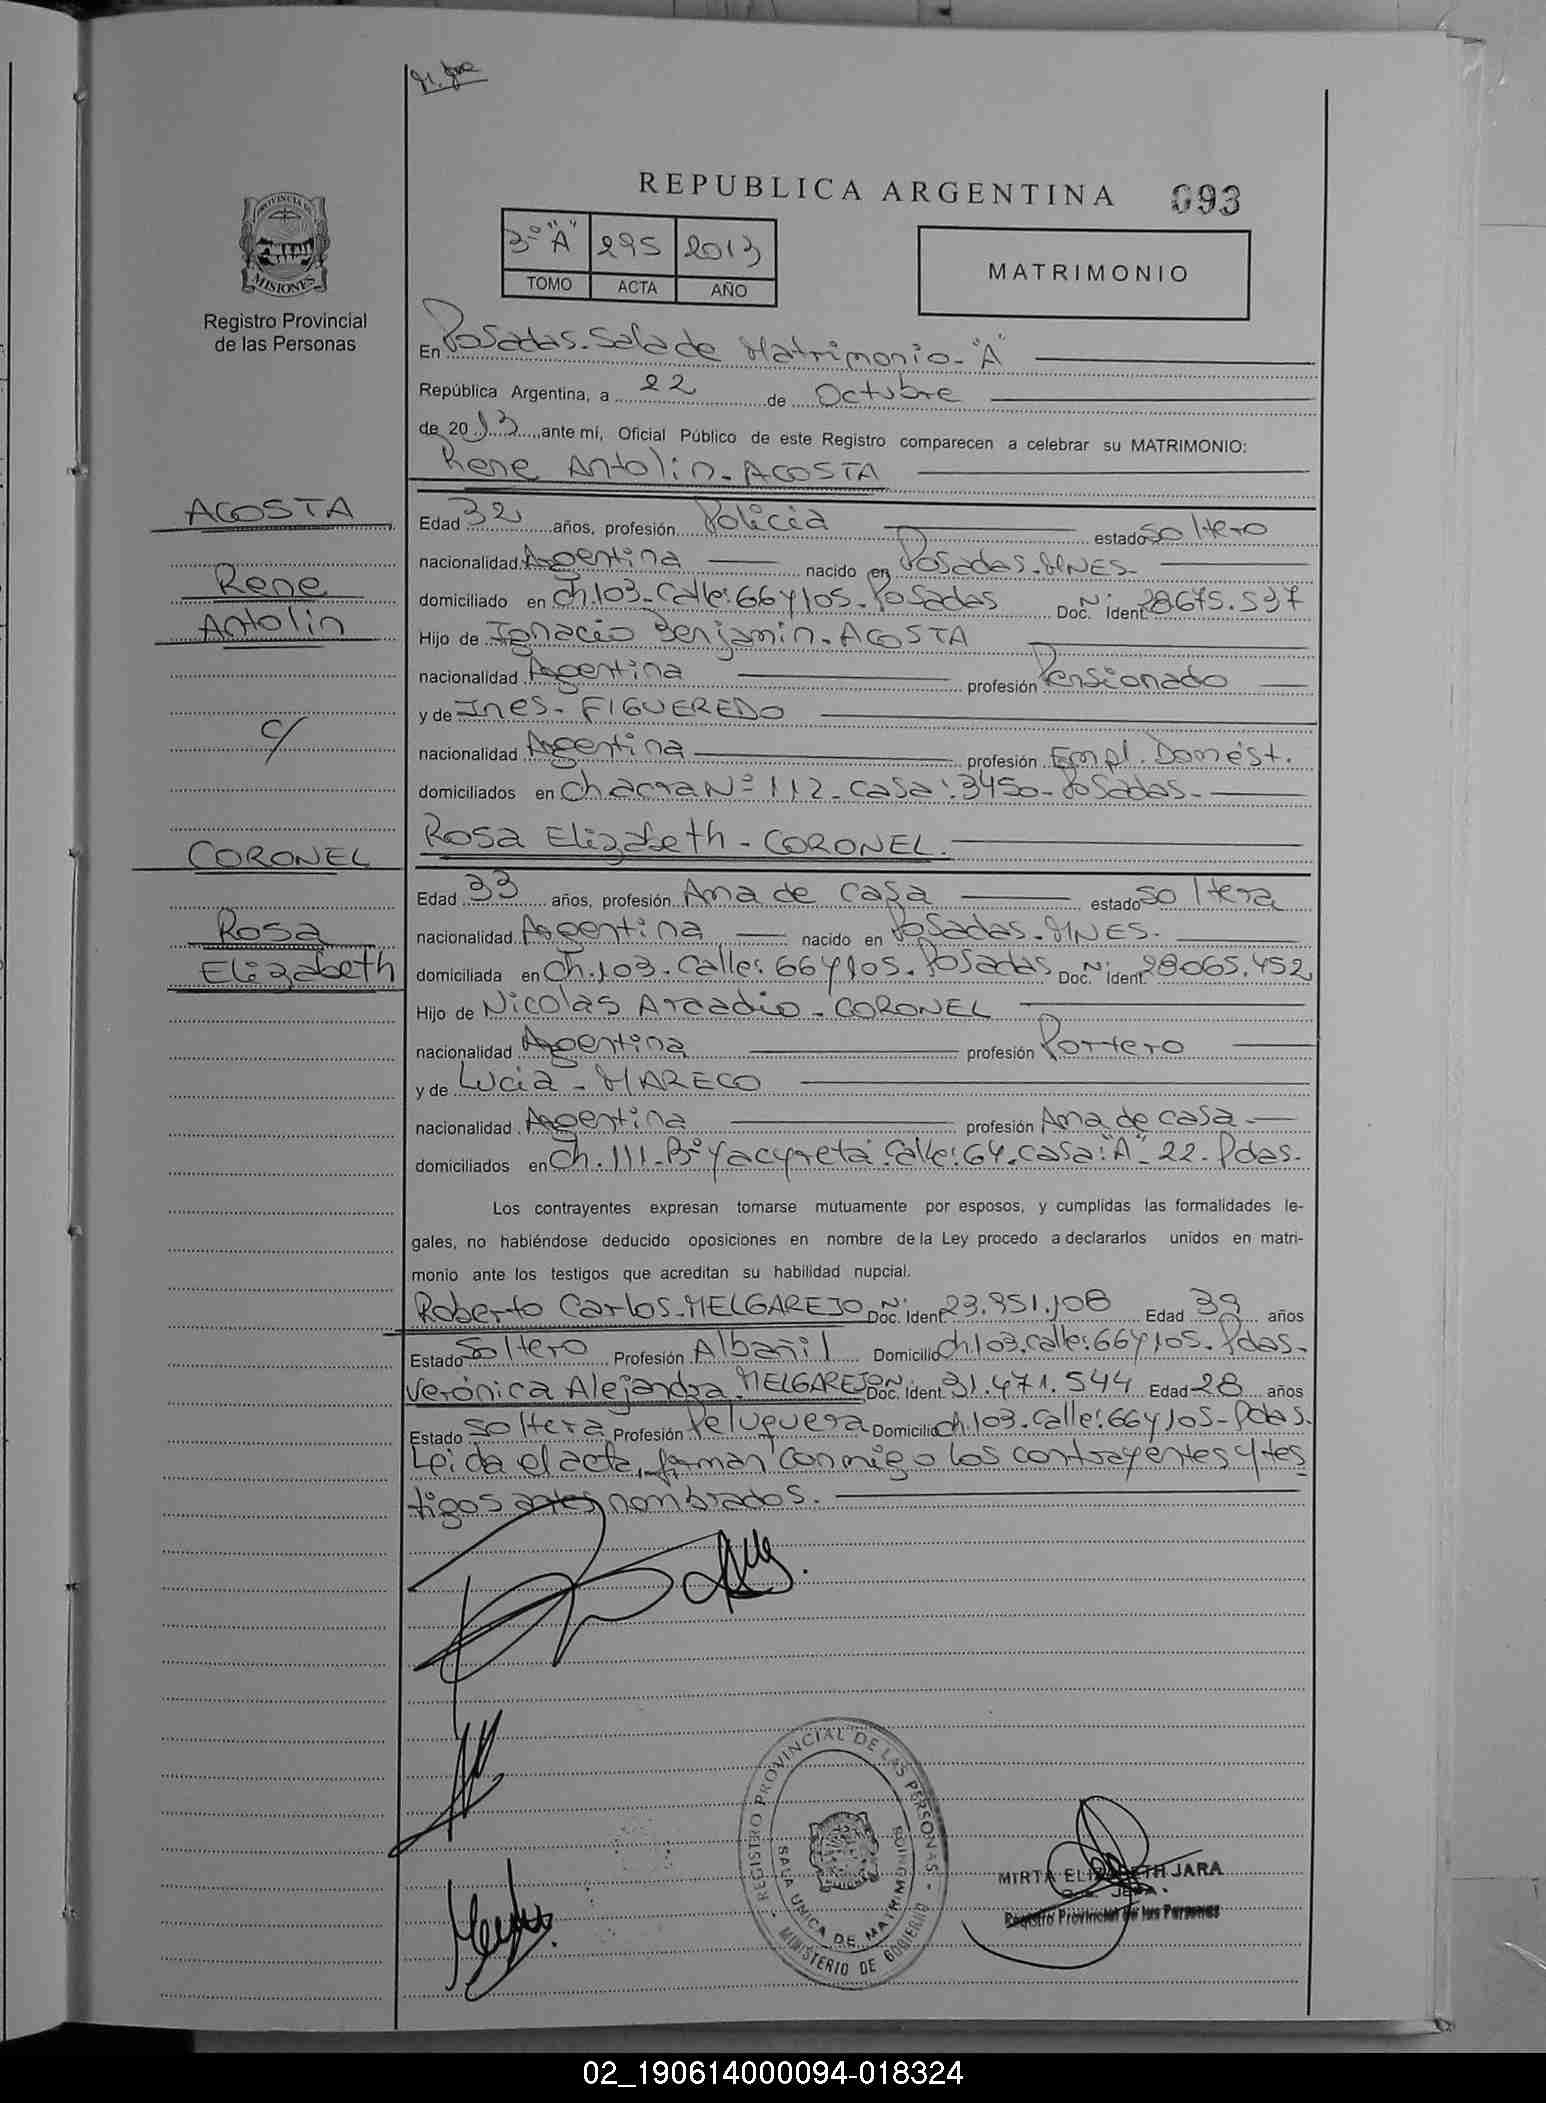 REPUBLICA ARGENTINA 093
3º "A" 295 2013
TOMO ACTA AÑO
MATRIMONIO
PROVINCIA DE
MISIONES
Registro Provincial
de las Personas
En Posadas-Sala de Matrimonio-"A"
República Argentina, a 22 de Octubre
de 2013 ante mí, Oficial Público de este Registro comparecen a celebrar su MATRIMONIO:
Rene Antolin-ACOSTA
ACOSTA
Rene
Antolin
c/
CORONEL
Rosa
Elizabeth
Edad 32 años, profesión Policia estado soltero
nacionalidad Argentina nacido en Posadas-MNES-
domiciliado en Ch.103-Calle:66y105-Posadas Doc. Nº Ident. 28675.537
Hijo de Ignacio Benjamin-ACOSTA
nacionalidad Argentina profesión Pensionado
y de Ines-FIGUEREDO
nacionalidad Argentina profesión Empl. Domést.
domiciliados en Chacra Nº 112-casa:3450-Posadas-
Rosa Elizabeth-CORONEL.
Edad 33 años, profesión Ama de casa estado soltera
nacionalidad Argentina nacido en Posadas-MNES-
domiciliada en Ch.103-Calle:66y105-Posadas Doc. Nº Ident. 28065.452
Hijo de Nicolas Arcadio-CORONEL
nacionalidad Argentina profesión Portero
y de Lucia-MARECO
nacionalidad Argentina profesión Ama de casa-
domiciliados en Ch.111-Bº Yacyreta-Calle:64-casa:"A"-22-Pdas-
Los contrayentes expresan tomarse mutuamente por esposos, y cumplidas las formalidades le-
gales, no habiéndose deducido oposiciones en nombre de la Ley procedo a declararlos unidos en matri-
monio ante los testigos que acreditan su habilidad nupcial.
Roberto Carlos-MELGAREJO Doc. Nº Ident. 23.951.108 Edad 39 años
Estado soltero Profesión Albañil Domicilio Ch.103-Calle:66y105-Pdas-
Verónica Alejandra-MELGAREJO Doc. Nº Ident. 31.471.544 Edad 28 años
Estado soltera Profesión Peluquera Domicilio Ch.103-Calle:66y105-Pdas-
Leida el acta, firman conmigo los contrayentes y tes
tigos antes nombrados.
REGISTRO PROVINCIAL DE LAS PERSONAS
SALA UNICA DE MATRIMONIOS
MINISTERIO DE GOBIERNO
MIRTA ELIZABETH JARA
JEFA
Registro Provincial de las Personas
02_190614000094-018324